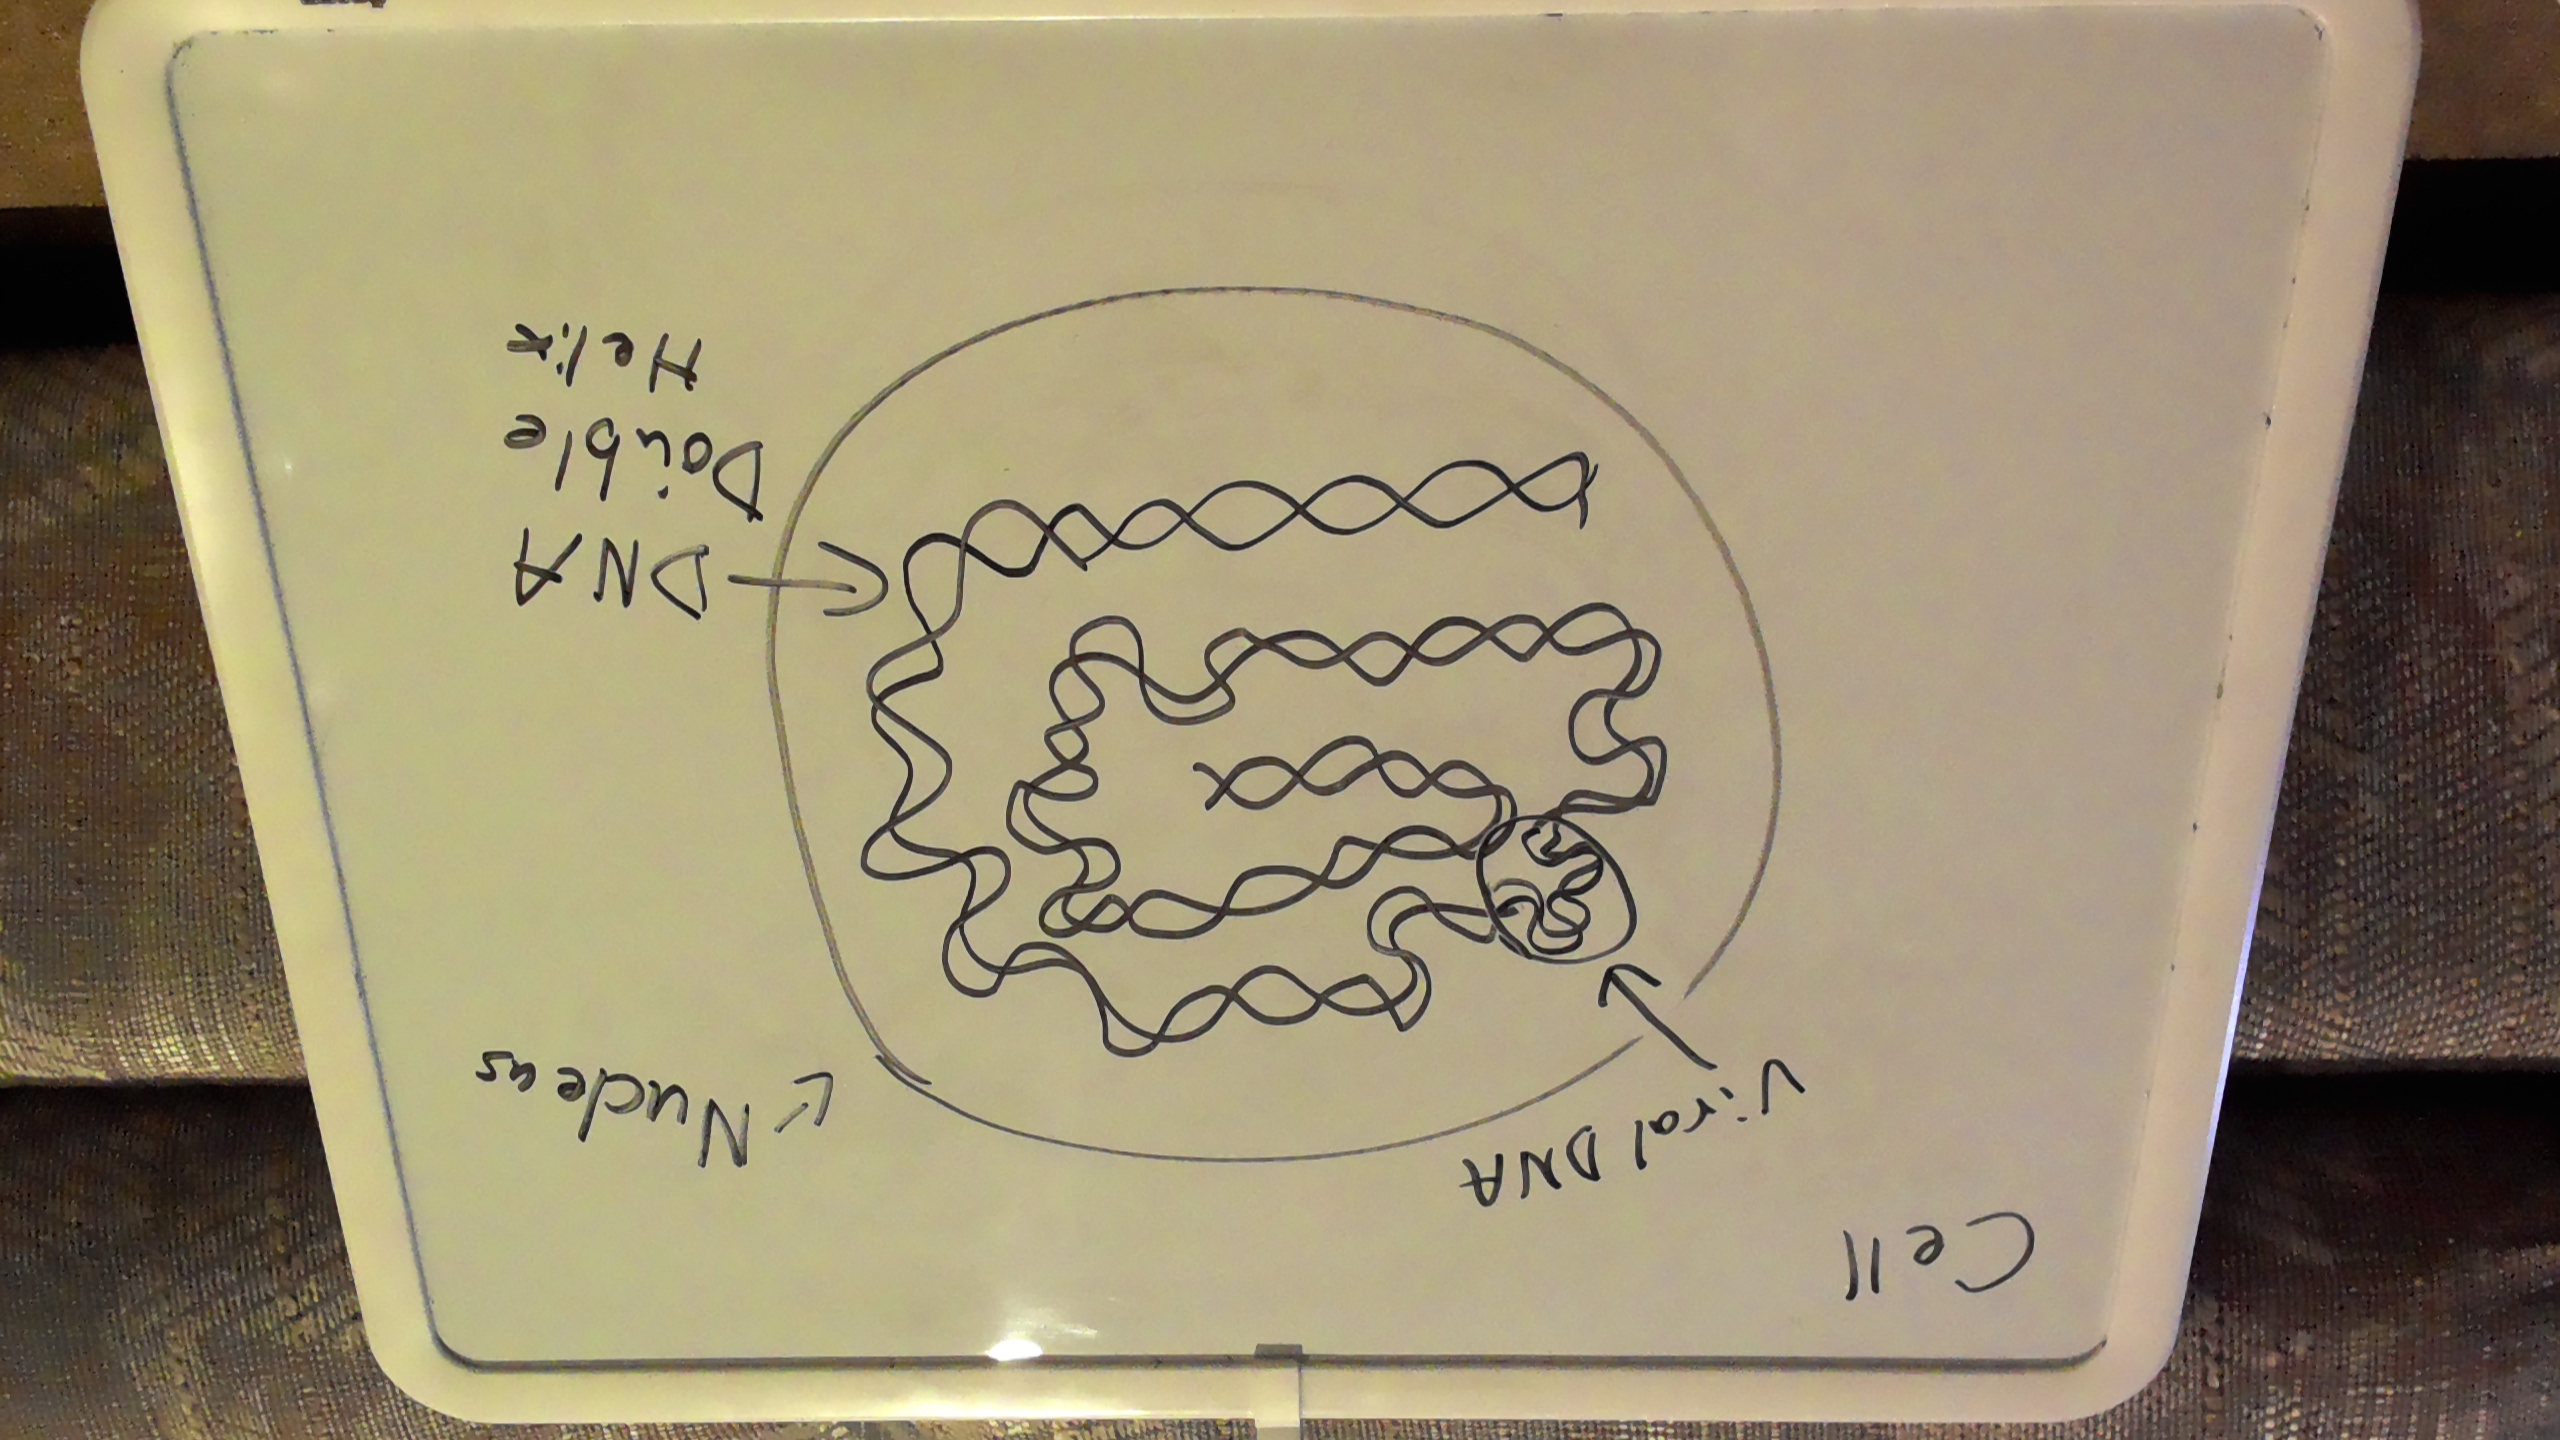 Cell
Viral DNA
Nucleus
DNA
Double
Helix